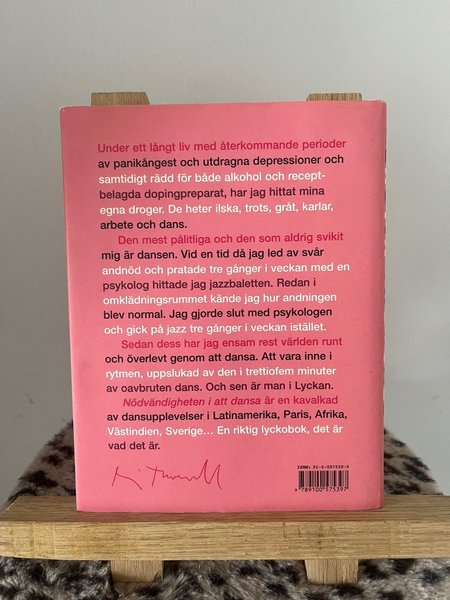 Under ett långt liv med återkommande perioder
av panikångest och utdragna depressioner och
samtidigt rädd för både alkohol och recept-
belagda dopingpreparat, har jag hittat mina
egna droger. De heter ilska, trots, gråt, karlar,
arbete och dans.
Den mest pålitliga och den som aldrig svikit
mig är dansen. Vid en tid då jag led av svår
andnöd och pratade tre gånger i veckan med en
psykolog hittade jag jazzbaletten. Redan i
omklädningsrummet kände jag hur andningen
blev normal. Jag gjorde slut med psykologen
och gick på jazz tre gånger i veckan istället.
Sedan dess har jag ensam rest världen runt
och överlevt genom att dansa. Att vara inne i
rytmen, uppslukad av den i trettiofem minuter
av oavbruten dans. Och sen är man i Lyckan.
Nödvändigheten i att dansa är en kavalkad
av dansupplevelser i Latinamerika, Paris, Afrika,
Västindien, Sverige... En riktig lyckobok, det är
vad det är.
9 789100 575397